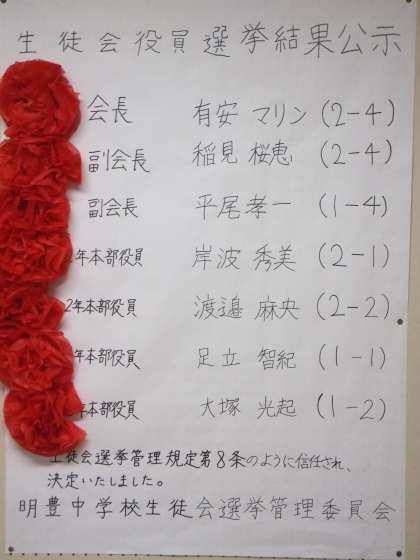 生徒会役員選挙結果公示
会長 有安 マリン (2-4)
副会長 稲見 桜恵 (2-4)
副会長 平尾 孝一 (1-4)
年本部役員 岸波 秀美 (2-1)
2年本部役員 渡邉 麻央 (2-2)
年本部役員 足立 智紀 (1-1)
年本部役員 大塚 光起 (1-2)
生徒会選挙管理規定第8条のように信任され、
決定いたしました。
明豊中学校生徒会選挙管理委員会